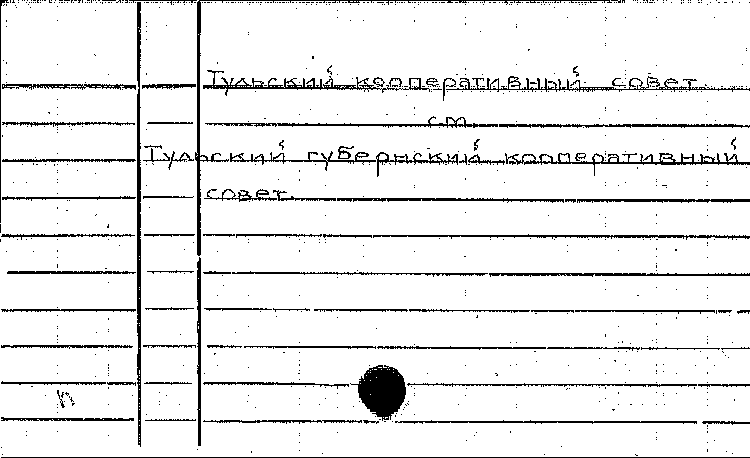 Тульский кооперативный совет.
см.
Тульский губернский кооперативный
совет.